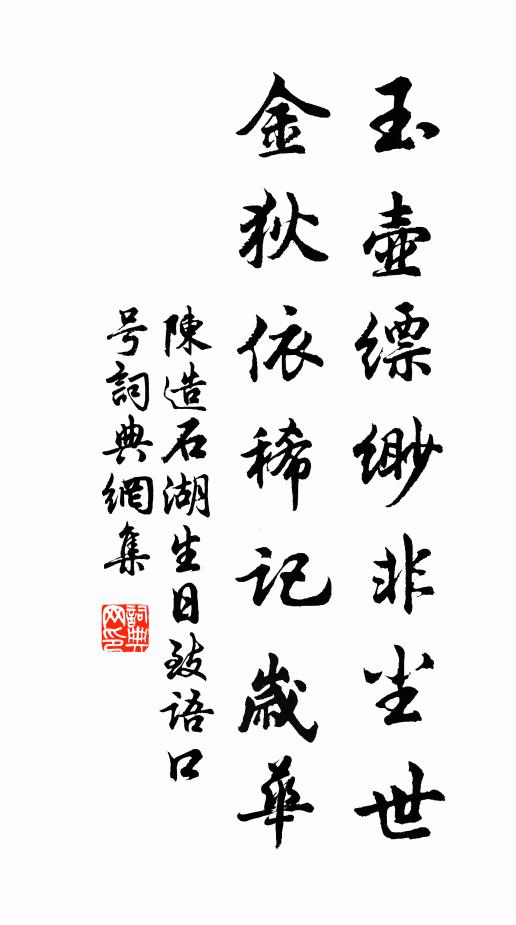 玉壺縹緲非尘世
金狄依稀記歳華
陳造石湖生日致语口
号詞典網集
詞典网印